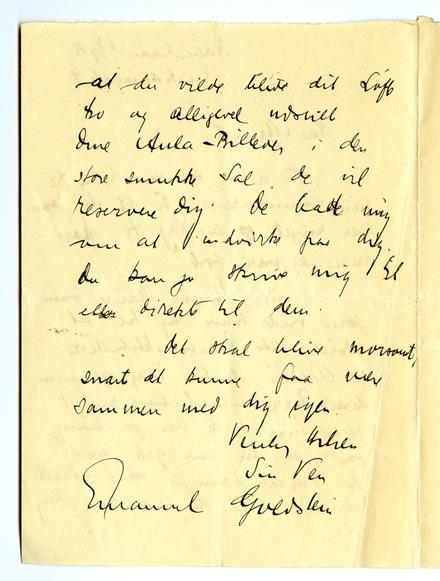 at du vilde blive dit Løft
tro og alligevel udstill
Dine Aula-Billeder i den
store smukke Sal, de vil
reservere dig. De bad mig
om at indvirke paa dig.
Du kan jo skrive mig til
eller direkte til dem.
Det skal blive morsomt,
snart at kunne faa være
sammen med dig igen.
Venlig Hilsen
Din Ven
Emanuel Goldstein